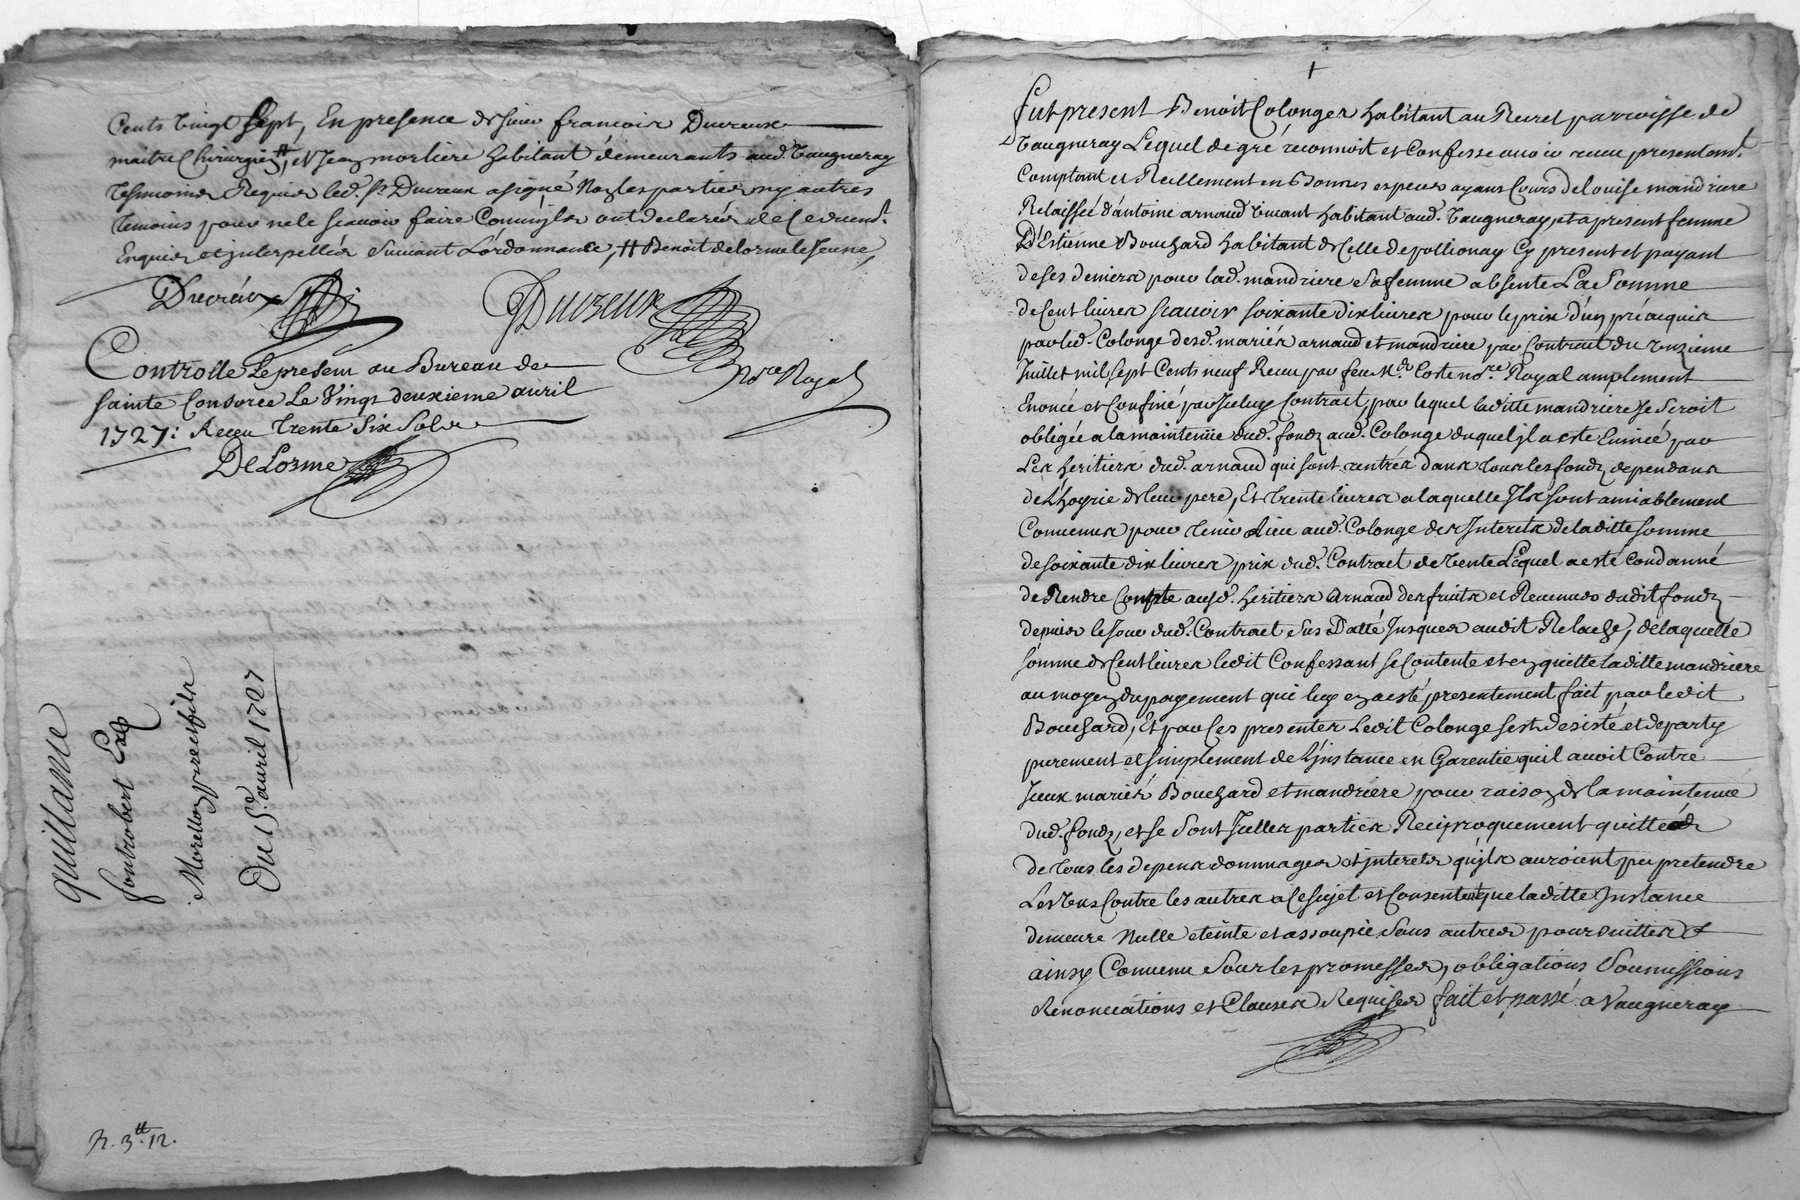 Cents vingt sept, En presence de sieur francois Ducreux
maitre Chirurgien, # et Jean morliere habitant demeurants aud. Vaugneray
tesmoins Requis led. Sr. Ducreux a signé Non les parties ny autres
temoins pour ne le scavoir faire Comm'ils ont declarés de Ce
Enquis et interpellés Suivant L'ordonnance, # Benoit delorme le Jeune,
Ducreux
Ducreux
nore Royal
Controlle Le present au Bureau de
sainte Consorce Le Vingt deuxieme avril
1727: Receu trente Six Sols
DeLorme
quittance
fontrobert Exp
Du 15e. avril 1727
R. 3tt. 12.
fut present Benoit Colonges habitant au Recret parroisse de
Vaugneray Lequel de gré reconnoit et Confesse avoir receu presentemt.
Comptant et Reellement en Bonnes especes ayans Cours de Louise mandriere
Relaissée d'antoine arnaud vivant habitant aud. Vaugneray, et a present femme
D'Estienne Bouchard habitant de Celle de pollionay Cy present et payant
de ses deniers pour lad. mandriere Sa femme absente La Somme
de Cent livres scavoir soixante dix livres pour le prix d'un pré acquis
par led. Colonge desd. mariés arnaud et mandriere par Contract du onzieme
Juillet mil Sept Cents neuf Receu par feu Me. Coste nore. Royal amplement
Enoncé et Confiné par Iceluy Contract, par lequel laditte mandriere Se Seroit
obligée a la maintenüe dud. fondz aud. Colonge duquel jl a esté Evincé par
Les heritiers dud. arnaud qui sont rentrés dans tous les fondz dependans
de L'hoyrie de leur pere, Et trente livres a laquelle Ils sont amiablement
Convenus pour tenir Lieu aud. Colonge des Interets de laditte somme
de soixante dix livres prix dud. Contract de Vente Lequel a esté Condamné
de Rendre Compte ausd. heritiers Arnaud des fruits et Revenus dudit fondz
depuis le Jour dud. Contract Sus Datté Jusques audit Relache, de laquelle
somme de Cent livres ledit Confessant se Contente et en quitte laditte mandriere
au moyen du payement qui luy en a esté presentement fait par ledit
Bouchard, Et par Ces presentes Ledit Colonge s'est desisté et departy
purement et Simplement de L'instance en Garentie qu'il avoit Contre
Iceux mariés Bouchard et mandriere pour raison de la maintenue
dud. fondz, et se Sont Icelles parties Reciproquement quittées
de tous les depens dommages et interets qu'ils auroient pu pretendre
Les Uns Contre les autres a Ce sujet et Consentent que laditte Instance
demeure Nulle eteinte et assoupie Sans autres poursuittes et
ainsy Convenu Sous les promesses, obligations Soumissions
Renonciations et Clauses Requises fait et passé a Vaugneray